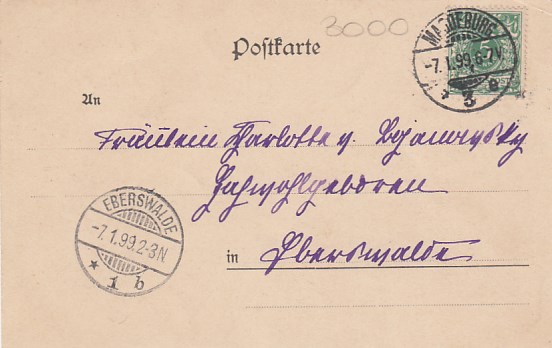 3000
Postkarte
MAGDEBURG
-7.1.99.6-7V
* 3 e
An
Fräulein Charlotte v.
Hochwohlgeboren
in Eberswalde
EBERSWALDE
-7.1.99.2-3N
* 1 b